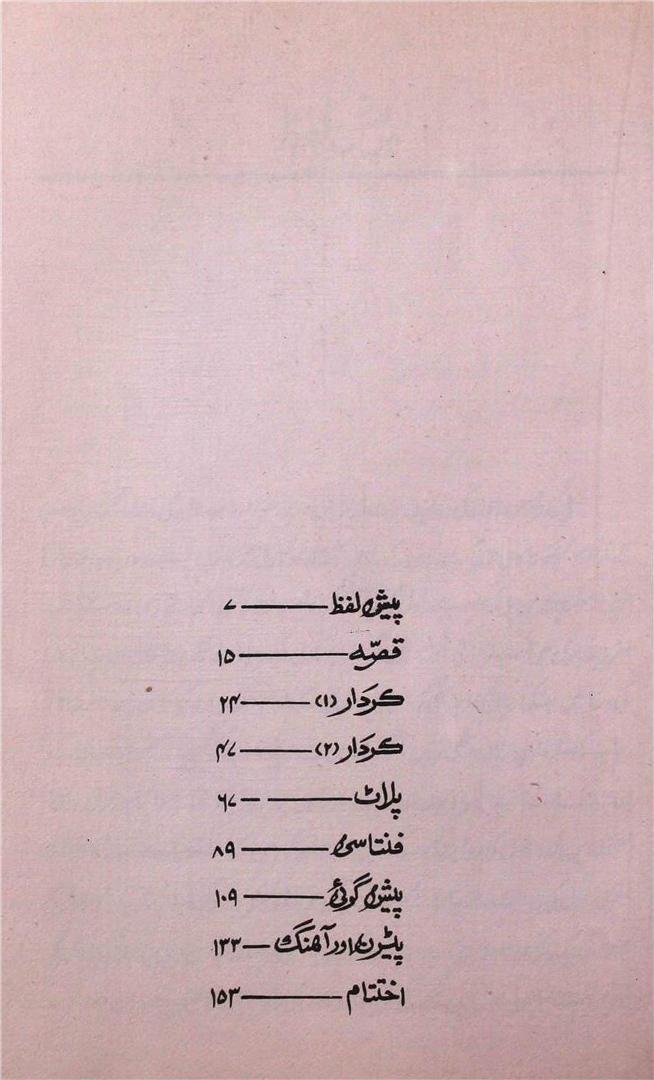 پیش لفظ ——— ۷
قصّہ ——— ۱۵
کردار (۱) ——— ۲۴
کردار (۲) ——— ۴۷
پلاٹ ——— ۶۷
فنتاسی ——— ۸۹
پیش گوئی ——— ۱۰۹
پیٹرن اور آھنگ — ۱۳۳
اختتام ——— ۱۵۳